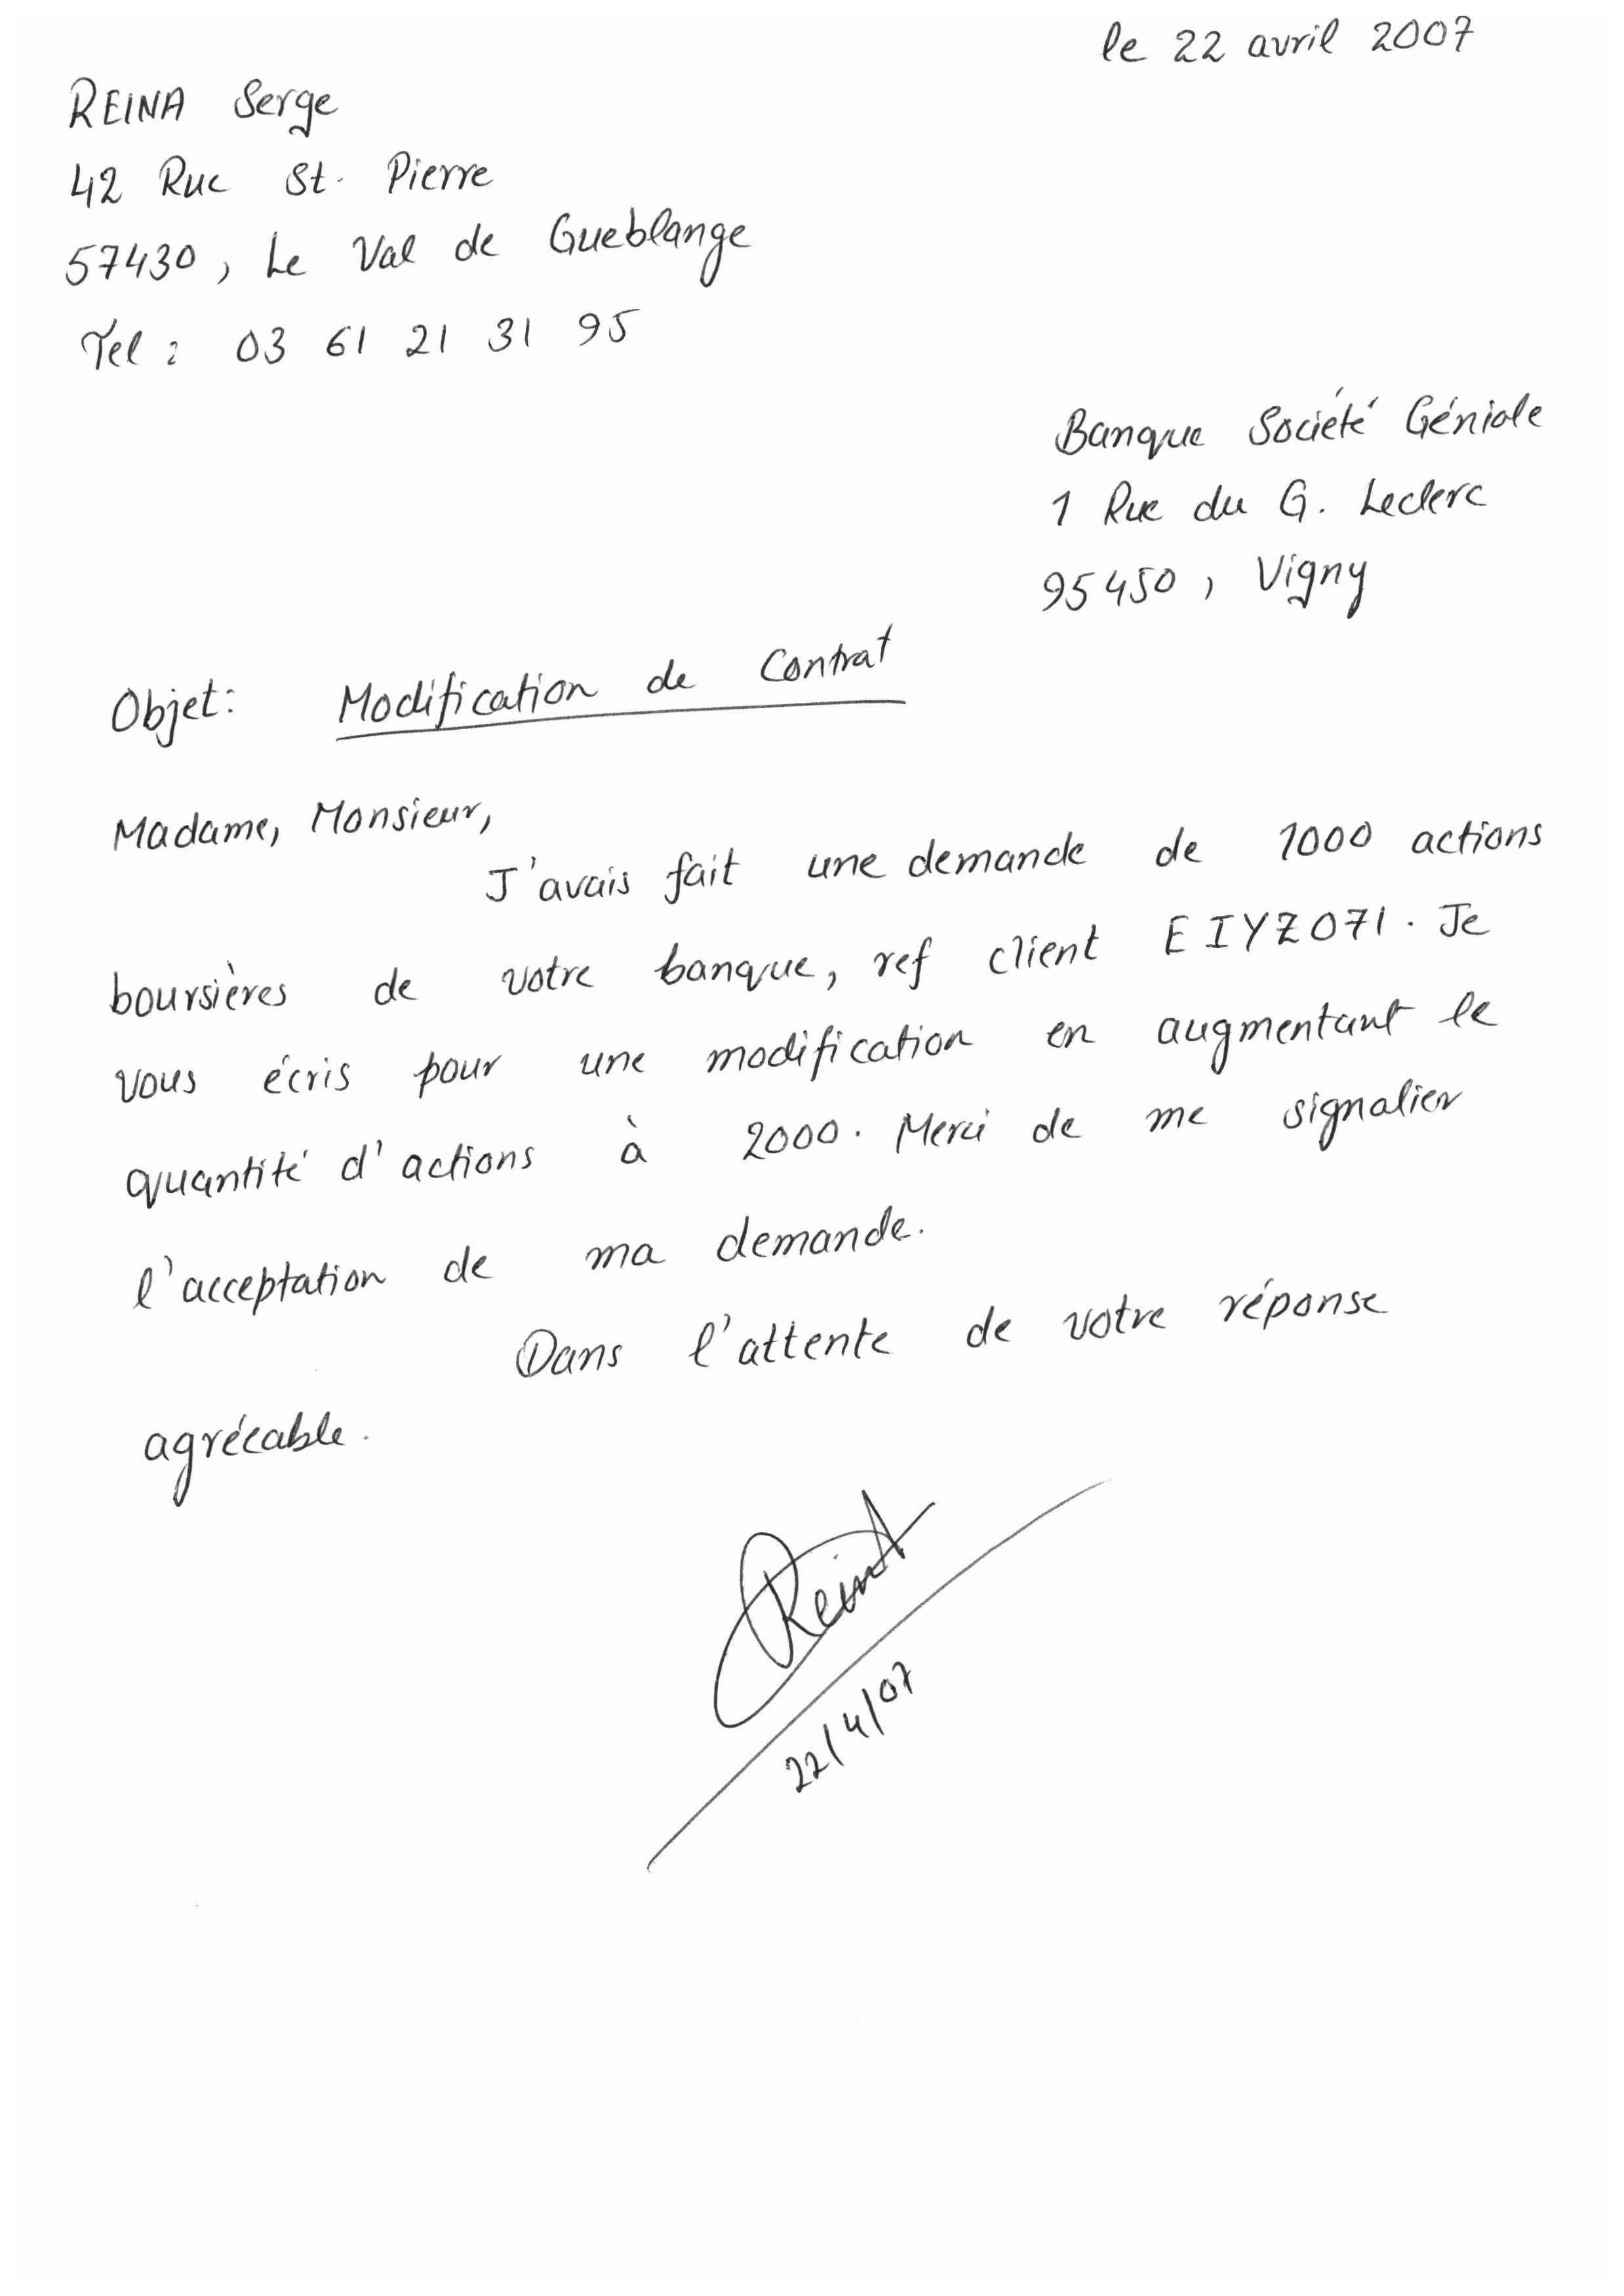 le 22 avril 2007
REINA Serge
42 Rue St. Pierre
57430, Le Val de Gueblange
Tel : 03 61 21 31 95
Banque Société Géniale
1 Rue du G. Leclerc
95450, Vigny
Objet: Modification de Contrat
Madame, Monsieur,
J'avais fait une demande de 1000 actions
boursières de votre banque, ref client EIYZ071. Je
vous écris pour une modification en augmentant le
quantité d'actions à 2000. Merci de me signalier
l'acceptation de ma demande.
Dans l'attente de votre réponse
agréeable.
ReinA
22/4/07